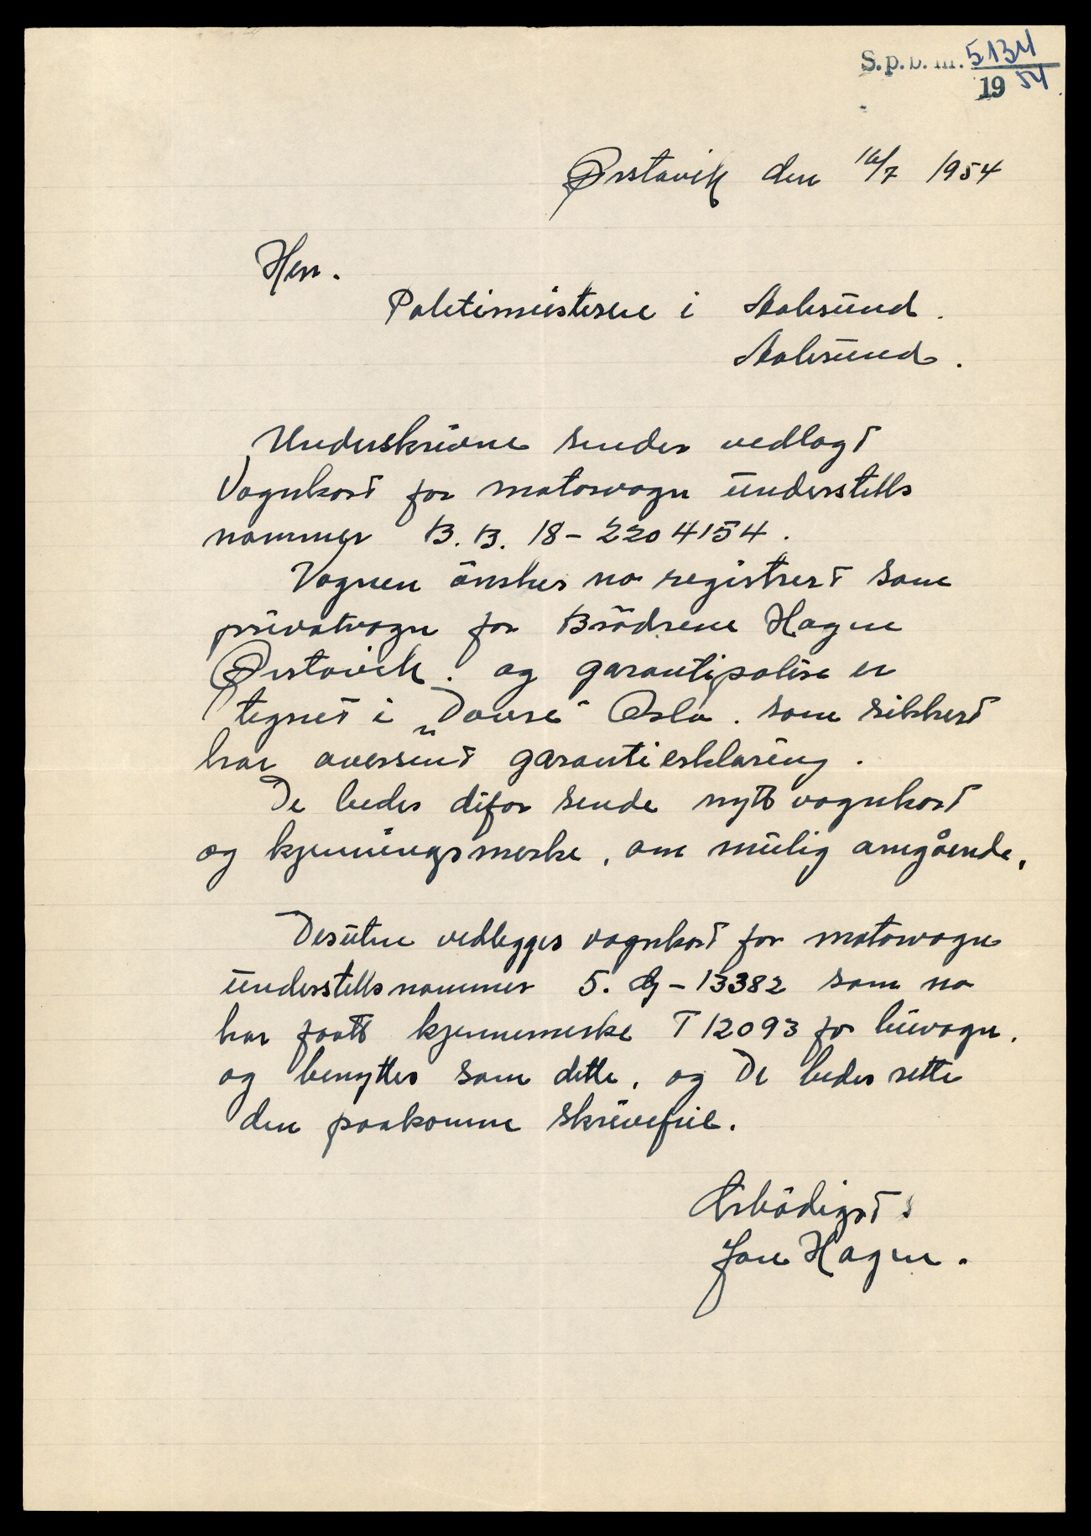 S.p.b. nr. 5134
19 54
Ørstavik den 16/7 1954
Herr.
Politimesteren i Aalesund.
Aalesund.
Underskrivne sender vedlagt
Vognkort for motorvogn understells
nommer B.B. 18-2204154.
Vognen önskes no registrert som
privatvogn for Brödrene Hagen
Ørstavik. og garantipolise er
tegnet i „Dovre" Oslo. som sikkert
har oversent garantierklæring.
De bedes difor sende nytt vognkort
og kjenningsmerke, om mulig omgående.
Desuten vedlegges vognkort for motorvogn
understellsnommer 5. G-13382 som no
har faatt kjennemerke T12093 for buvogn.
og benyttes som dette, og De bedes rette
den paakomne skrivefeil.
Ærbödigst
Jon Hagen.